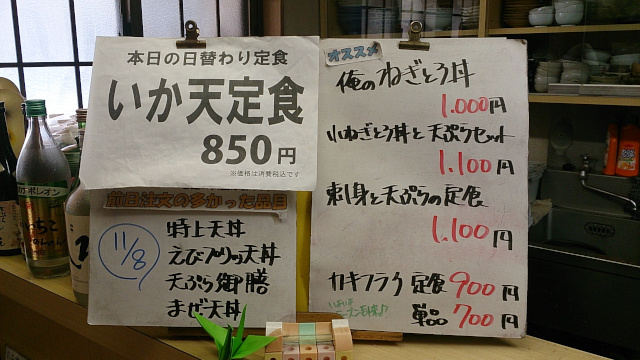 本日の日替わり定食
いか天定食
850円
※価格は消費税込です
前日注文の多かった品目
11/8
特上天丼
えびフリッ天丼
天ぷら御膳
まぜ天丼
オススメ
俺のねぎとろ丼
1.000円
小ねぎとろ丼と天ぷらセット
1.100円
刺身と天ぷらの定食
1.100円
カキフライ定食 900円
単品 700円